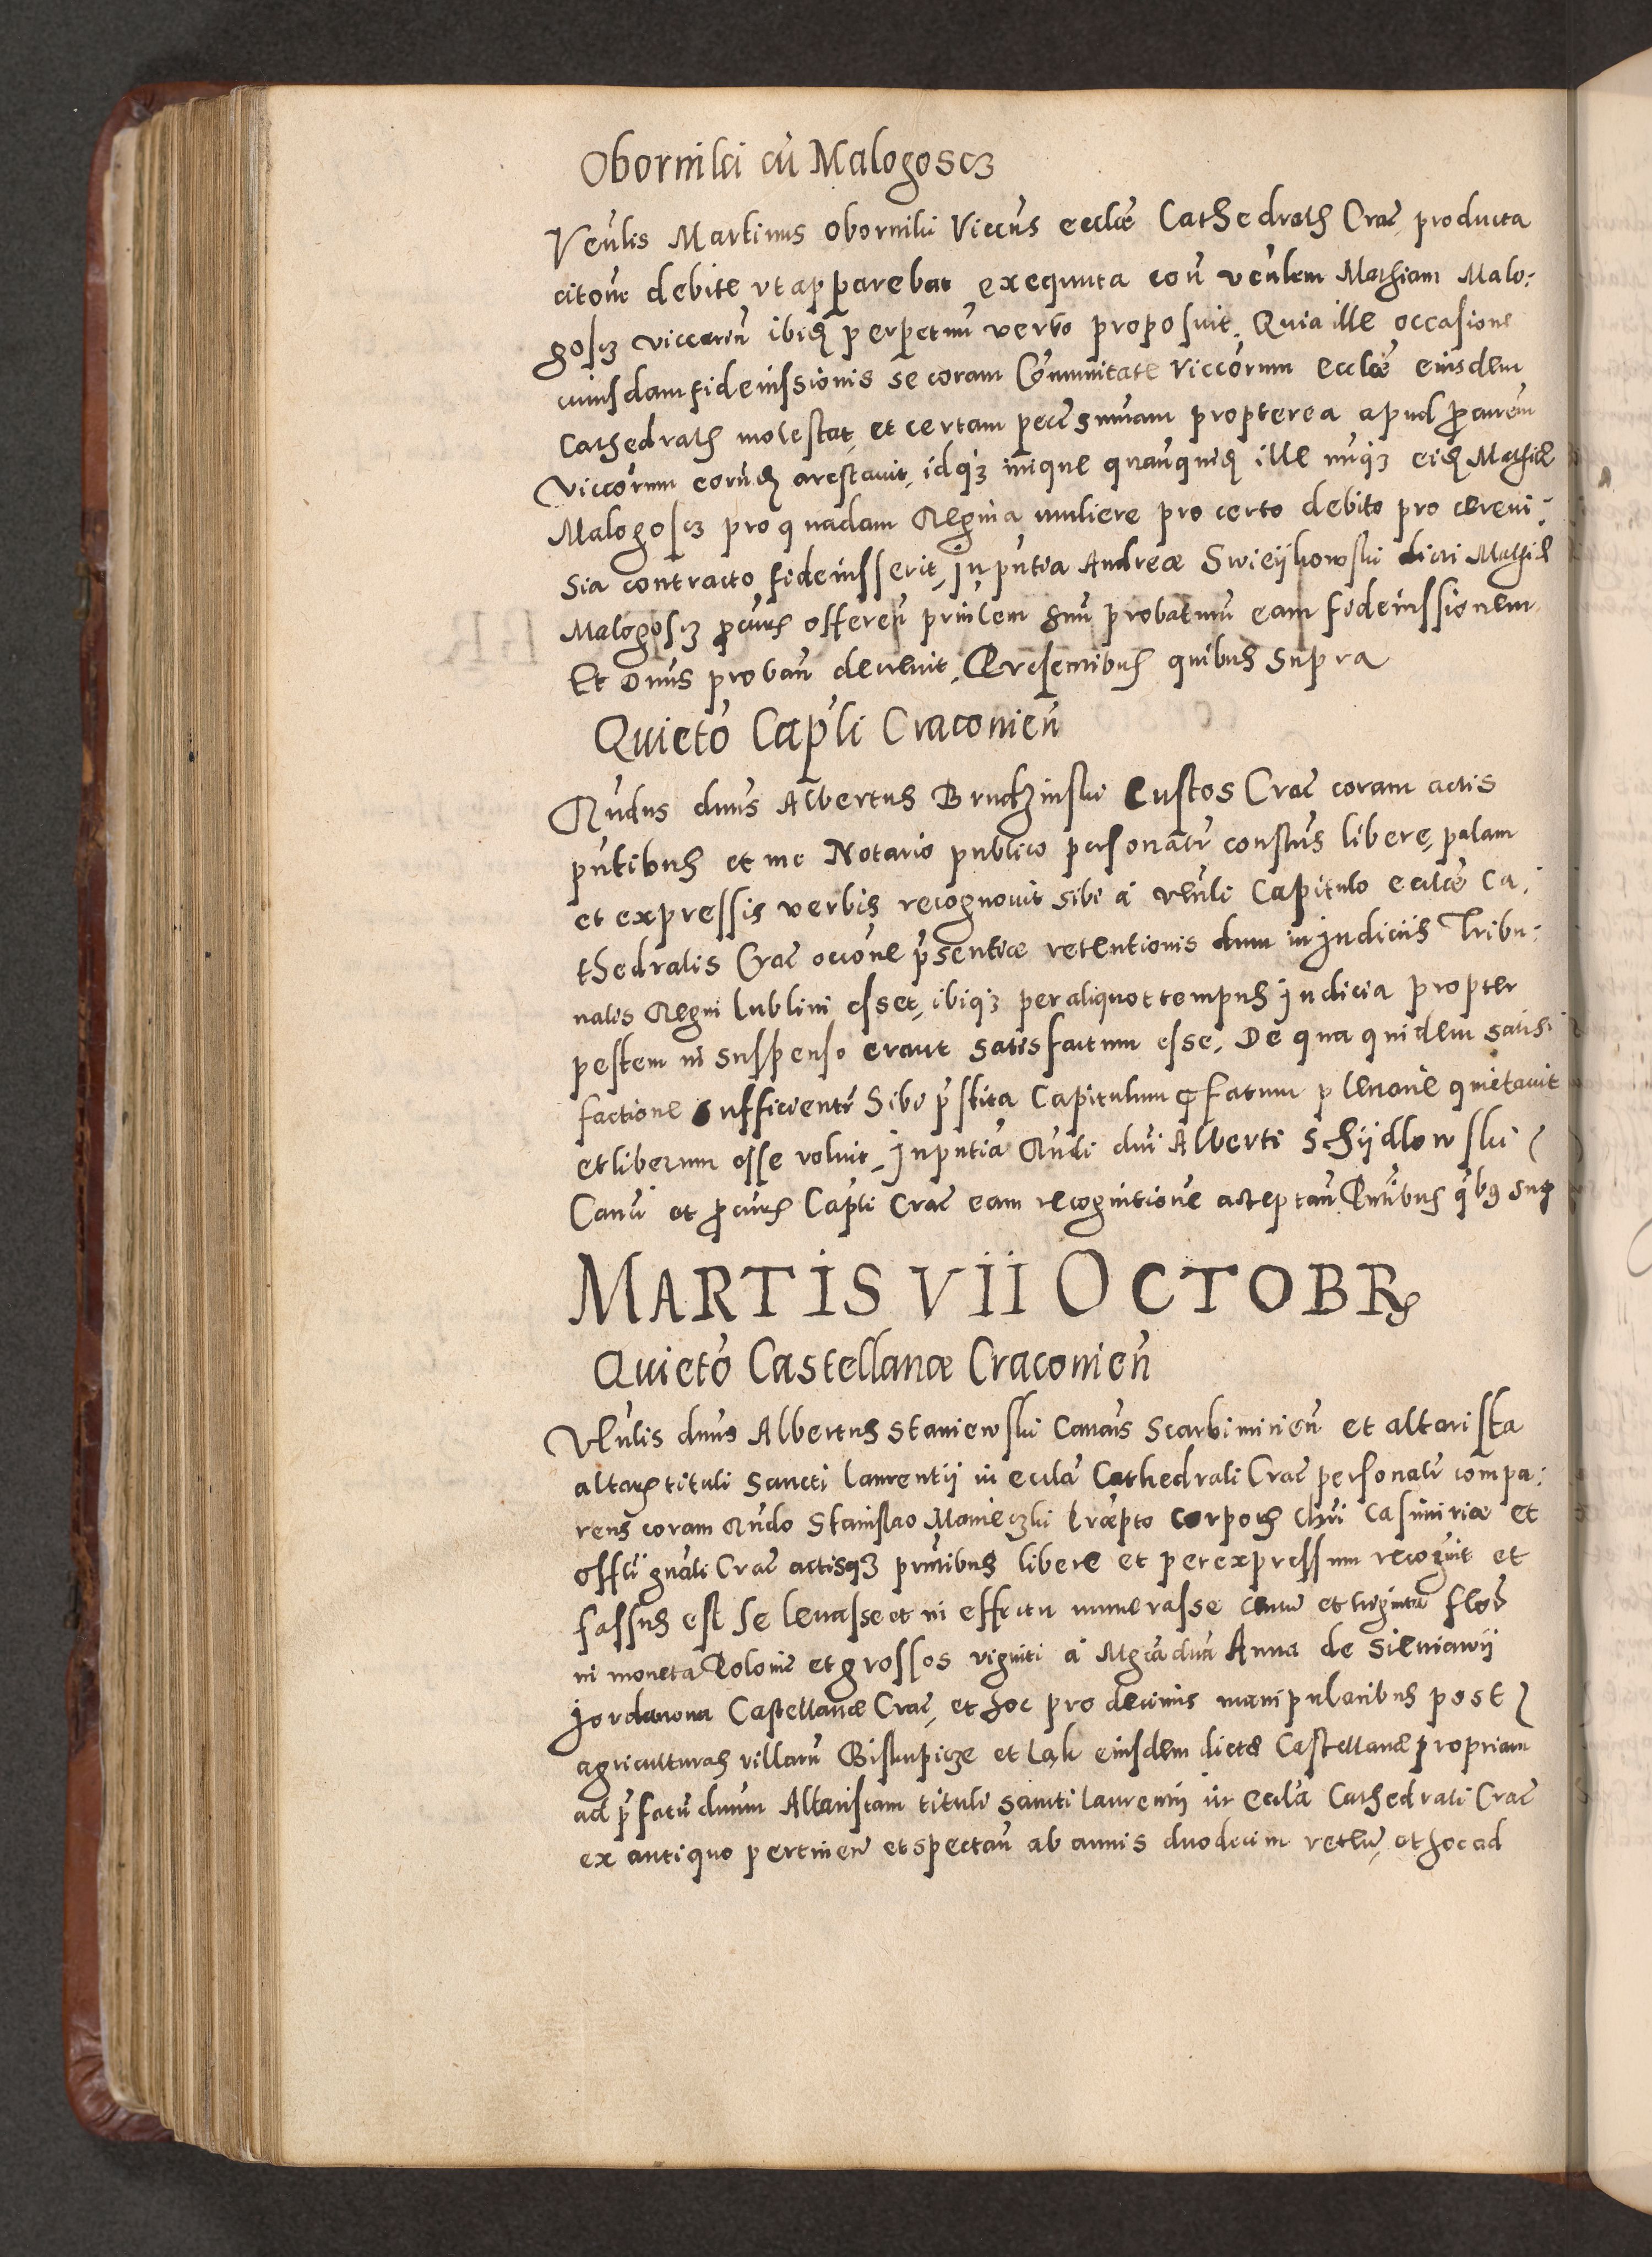 Obornilci cū Malogoscz
Venlis Martinus Obornilci Viccus ecclæ Cathedralis Crac producta
citone debite vt apparebat exequuta con venlem Mathiam Malo:
goscz viccarm ibidem perpetuū verbo proposuit. Quia ille occasione
cuiusdam fideiussionis se coram Cōmunitate viccorum ecclæ eiusdem
Cathedralis molestat, et certam pecc summam propterea apud procurem
viccorum eorundem arestauit, idqz inique quanquidem ille nuqz eidem Mathiæ
Malogoscz pro quadam Regina muliere pro certo debito pro cereui:
sia contracto fideiusserit, In pntia Andreæ Swieijkowski dicti Mathiæ
Malogoscz procuris offeren prinlem suū probaturū eam fideiussionem
Et onus proban deuenit, Præsentibus quibus supra
Quieto Capli Cracouien
Rndus dnus Albertus Brudzinski Custos Crac coram actis
pntibus et me Notario publico personatr constus libere, palam
et expressis verbis recognouit sibi a venli Capitulo ecclæ Ca:
thedralis Crac occone psentiæ retentionis dum in Judiciis Tribu:
nalis Regni Lublini esset, ibiqz per aliquot tempus Judicia propter
pestem in suspenso erant satisfactum esse. De qua quidem satis:
factione sufficientr Sibi pstita Capitulum pfatum plenarie quietauit
et liberum esse voluit, In pntia Rndi dni Alberti Schijdlowski
Canci et procuris Capli Crac eam recognitione acceptan Pntibus qbus sup
MARTIS VII OCTOBRis
Quieto Castellanæ Cracouien
Venlis dnus Albertus Staniewski Canus Scarbimirien et altarista
altaris tituli Sancti Laurentij in eccla Cathedrali Crac personatr compa:
rens coram Rndo Stanislao Manieczki præpto Corporis Chri Casimiriæ et
offli gnali Crac actisqz pntibus libere et per expressum recoguit et
fassus est se leuasse et in effectu numerasse centū et triginta flos
in moneta Poloniæ et grossos viginti a Mgca dna Anna de Sieniawij
Jordanowa Castellana Crac, et hoc pro decimis manipularibus post
agriculturas villarū Biskupicze et Lak eiusdem dictæ Castellanæ propriam
ad pfatū dnum Altaristam tituli sancti Laurentij in eccla Cathedrali Crac
ex antiquo pertinen et spectan ab annis duodecim reten, et hoc ad